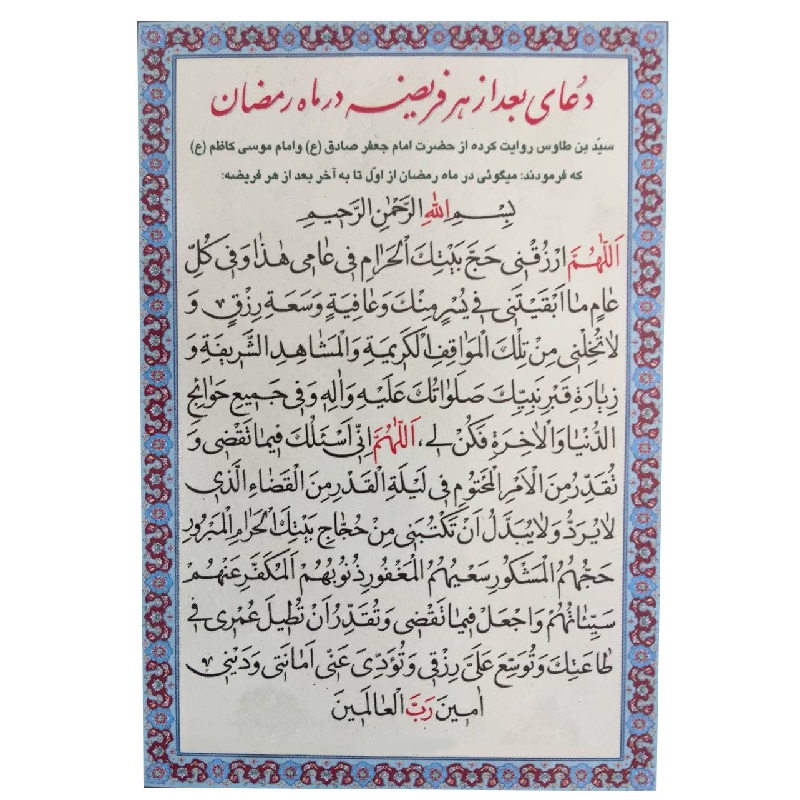 دُعای بعد از هر فریضه در ماه رمضان
سیّد بن طاوس روایت کرده از حضرت امام جعفر صادق (ع) وامام موسی کاظم (ع)
که فرمودند: میگوئی در ماه رمضان از اوّل تا به آخر بعد از هر فریضه:
بِسْمِ اللهِ الرَّحْمٰنِ الرَّحیمِ
اَللّٰهُمَّ ارْزُقْنی حَجَّ بَیْتِکَ الْحَرامِ فی عامی هٰذا وَفی کُلِّ
عامٍ ما اَبْقَیْتَنی فی یُسْرٍ مِنْکَ وَعافِیَةٍ وَسَعَةِ رِزْقٍ وَ
لا تُخْلِنی مِنْ تِلْکَ الْمَواقِفِ الْکَریمَةِ وَالْمَشاهِدِ الشَّریفَةِ وَ
زِیارَةِ قَبْرِ نَبِیِّکَ صَلَواتُکَ عَلَیْهِ وَالِهِ وَفی جَمیعِ حَوائِجِ
الدُّنْیا وَالْاٰخِرَةِ فَکُنْ لی، اَللّٰهُمَّ اِنّی اَسْئَلُکَ فیما تَقْضی وَ
تُقَدِّرُ مِنَ الْاَمْرِ الْمَحْتُومِ فی لَیْلَةِ الْقَدْرِ مِنَ الْقَضاءِ الَّذی
لا یُرَدُّ وَلا یُبَدَّلُ اَنْ تَکْتُبَنی مِنْ حُجّاجِ بَیْتِکَ الْحَرامِ الْمَبْرُورِ
حَجُّهُمُ الْمَشْکُورِ سَعْیُهُمُ الْمَغْفُورِ ذُنُوبُهُمْ اَلْمُکَفَّرِ عَنْهُمْ
سَیِّئاتُهُمْ وَاجْعَلْ فیما تَقْضی وَتُقَدِّرُ اَنْ تُطیلَ عُمْری فی
طاعَتِکَ وَتُوَسِّعَ عَلَیَّ رِزْقی وَتُؤَدِّیَ عَنّی اَمانَتی وَدَیْنی
امینَ رَبَّ الْعالَمینَ